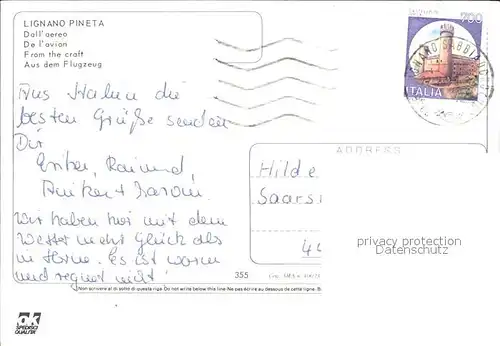 LIGNANO PINETA
Dall'aereo
De l'avion
From the craft
Aus dem Flugzeug
700
ITALIA
Aus Italien die
besten Grüße senden
Dir
Raimund,
Wir haben hier mit dem
Wetter mehr Glück als
in Herne. Es ist warm
und regnet nicht!
ADDRESS
Hilde
Saarst
44
privacy protection
Datenschutz
355
Non scrivere al di sotto di questa riga. Do not write below this line. Ne pas écrire au dessous de cette ligne.